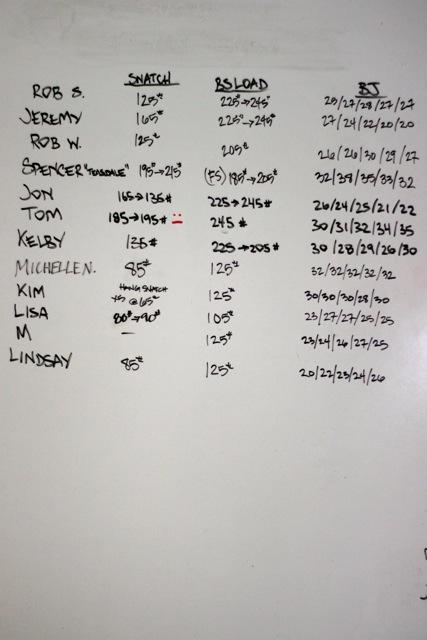 SNATCH BS LOAD BJ
ROB S. 125# 225#→245# 25/27/28/27/27
JEREMY 165# 225#→245# 27/24/22/20/20
ROB W. 125# 205# 26/26/30/29/27
SPENCER "TEASDALE" 195#→215# (FS) 185#→205# 32/39/35/33/32
JON 165→135# 225→245# 26/24/25/21/22
TOM 185→195# 245# 30/31/32/34/35
KELBY 135# 225→205# 30/28/29/26/30
MICHELLE N. 85# 125# 32/32/32/32/32
KIM HANG SNATCH @65# 125# 30/30/30/28/30
LISA 80#→90# 105# 23/27/27/25/25
M — 125# 23/24/26/27/25
LINDSAY 85# 125# 20/22/23/24/26